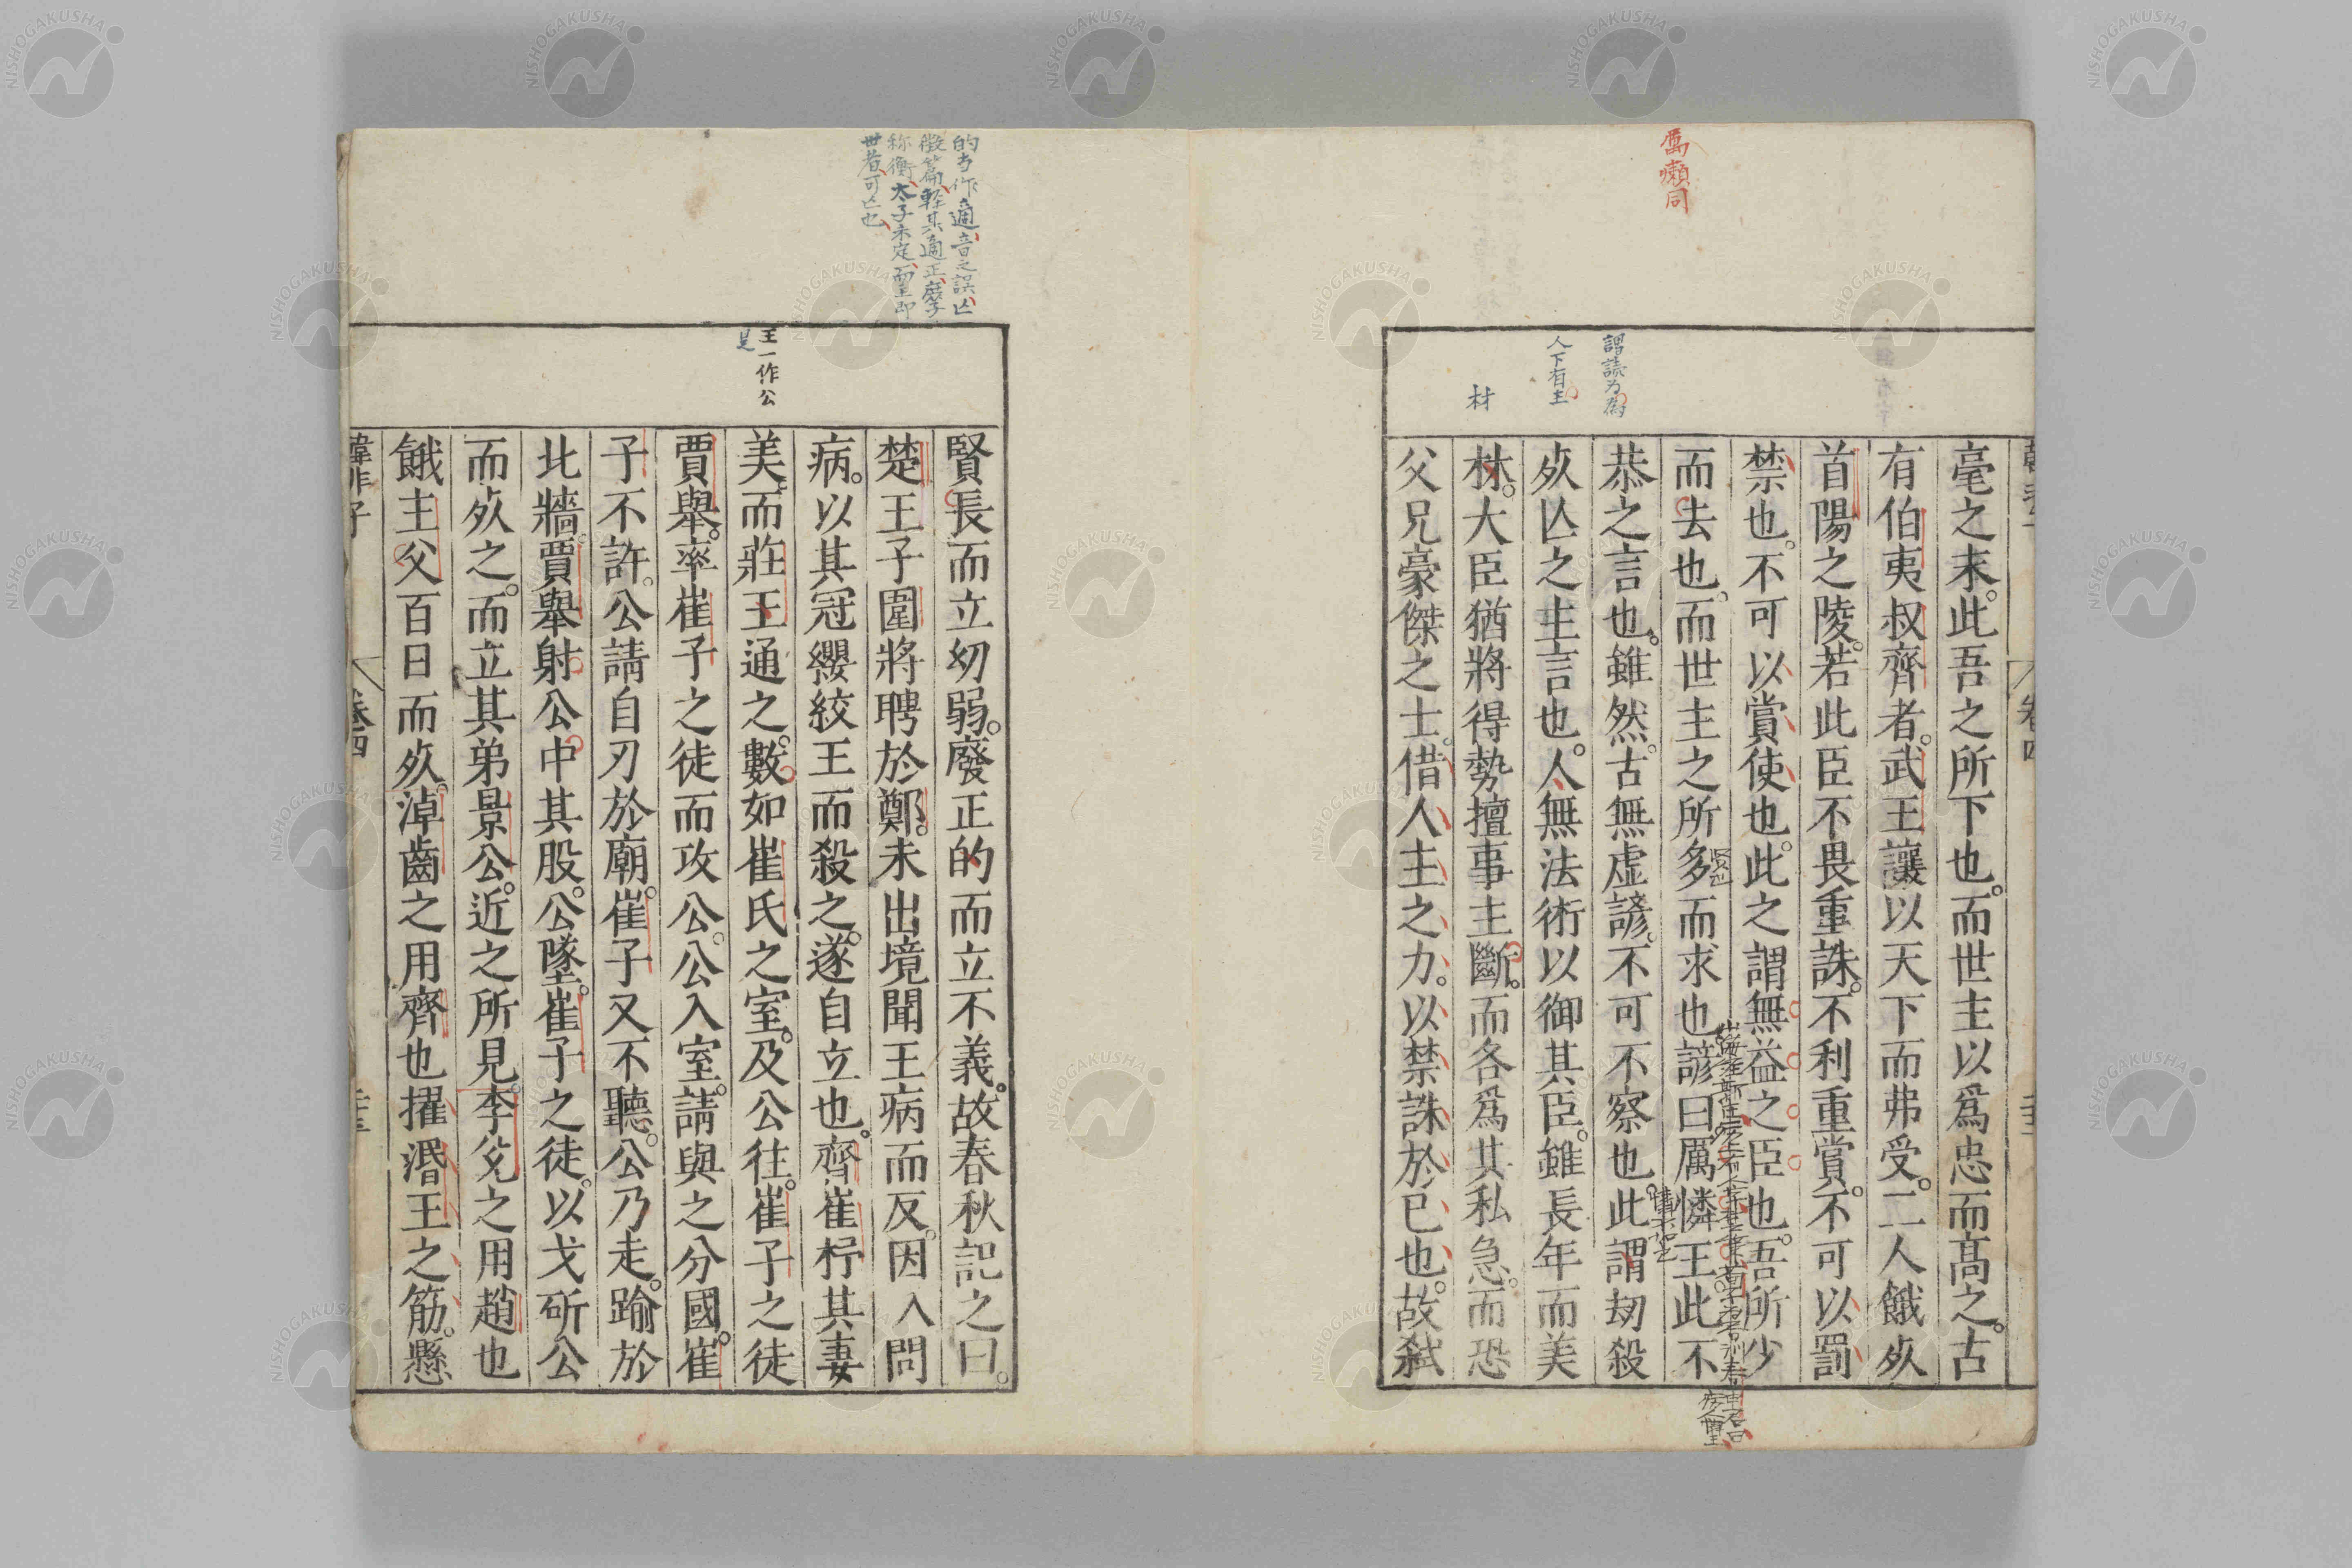 厲癩同
謂読為
人下有主
材
毫之末。此吾之所下也。而世主以爲忠而髙之。古
有伯夷叔齊者。武王讓以天下而弗受。二人餓㱙
首陽之陵。若此臣不畏重誅。不利重賞。不可以罰
禁也。不可以賞使也。此之謂無益之臣也。吾所少
而去也。而世主之所多而求也諺曰厲憐王此不
恭之言也。雖然。古無虛諺。不可不察也。此謂刼殺
㱙亾之主言也。人無法術以御其臣。雖長年而美
林。大臣猶將得勢擅事主斷。而各爲其私急。而恐
父兄豪傑之士。借人主之力。以禁誅於已也。故弑
卷四
的当作適音之誤亡
徴篇軽其適正庶子
称衡太子未定而主即
世者可亡也
王一作公
是
賢長而立㓜弱。廢正的而立不義。故春秋記之曰。
楚王子圍將聘於鄭。未出境聞王病而反。因入問
病。以其冠纓絞王而殺之。遂自立也。齊崔杼其妻
美。而莊王通之。數如崔氏之室。及公往。崔子之徒
賈舉。率崔子之徒而攻公。公入室。請與之分國。崔
子不許。公請自刃於廟。崔子又不聽。公乃走。踰於
北牆。賈舉射公中其股。公墜。崔子之徒。以戈斫公
而㱙之。而立其弟景公。近之所見。李兊之用趙也
餓主父百日而㱙。淖齒之用齊也擢湣王之筋。懸
韓非子
卷四